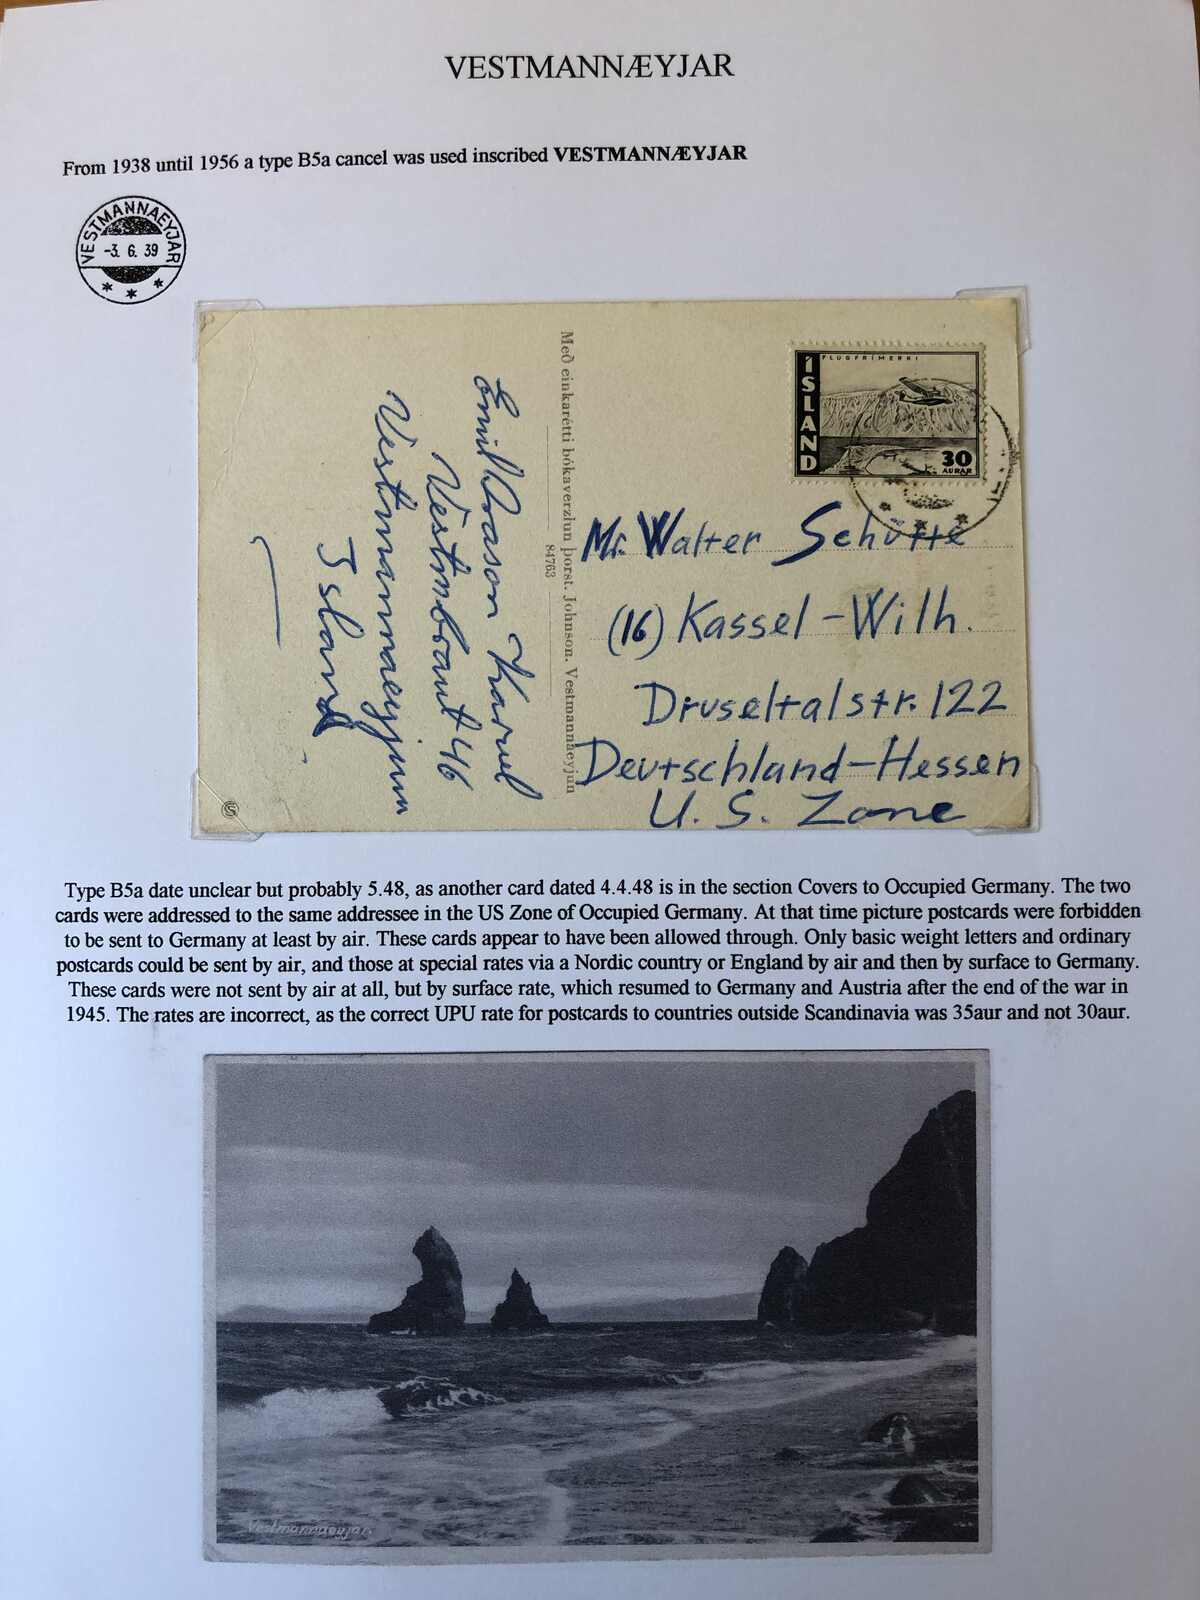 VESTMANNÆYJAR
From 1938 until 1956 a type B5a cancel was used inscribed VESTMANNÆYJAR
VESTMANNAEYJAR
-3. 6. 39
ÍSLAND
FLUGFRÍMERKI
30
AURAR
Með einkarétti bókaverzlun Þorst. Johnson. Vestmannaeyjum
84763
Emil
Karel
46
Vestmannaeyjum
Island
Mr. Walter Schütte
(16) Kassel-Wilh.
Druseltalstr. 122
Deutschland-Hessen
U. S. Zone
Type B5a date unclear but probably 5.48, as another card dated 4.4.48 is in the section Covers to Occupied Germany. The two
cards were addressed to the same addressee in the US Zone of Occupied Germany. At that time picture postcards were forbidden
to be sent to Germany at least by air. These cards appear to have been allowed through. Only basic weight letters and ordinary
postcards could be sent by air, and those at special rates via a Nordic country or England by air and then by surface to Germany.
These cards were not sent by air at all, but by surface rate, which resumed to Germany and Austria after the end of the war in
1945. The rates are incorrect, as the correct UPU rate for postcards to countries outside Scandinavia was 35aur and not 30aur.
Vestmannaeyjar.